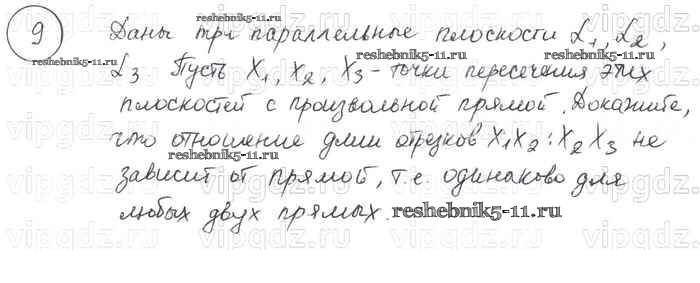 9 Даны три параллельные плоскости α₁, α₂,
α₃. Пусть X₁, X₂, X₃ - точки пересечения этих
плоскостей с произвольной прямой. Докажите,
что отношение длин отрезков X₁X₂ : X₂X₃ не
зависит от прямой, т.е. одинаково для
любых двух прямых.
reshebnik5-11.ru
reshebnik5-11.ru
reshebnik5-11.ru
reshebnik5-11.ru
reshebnik5-11.ru
vipgdz.ru